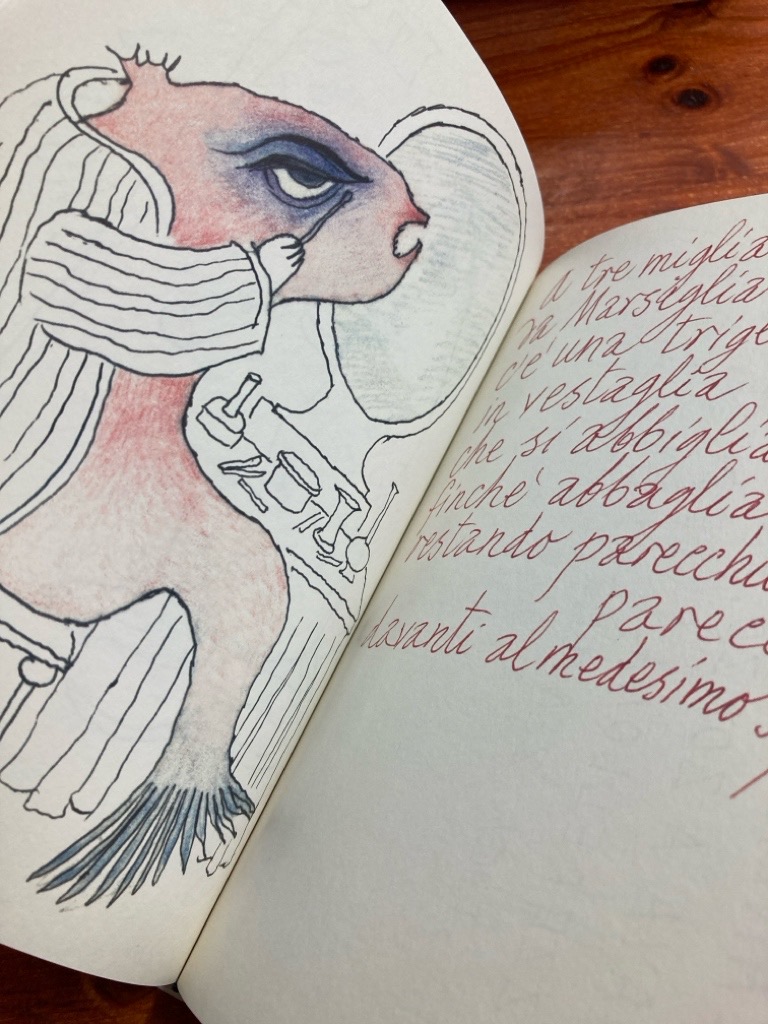 a tre miglia
da Marsiglia
c'è una trigl
in vestaglia
che si abbiglia
finché abbaglia
restando parecchi
parecc
davanti al medesimo